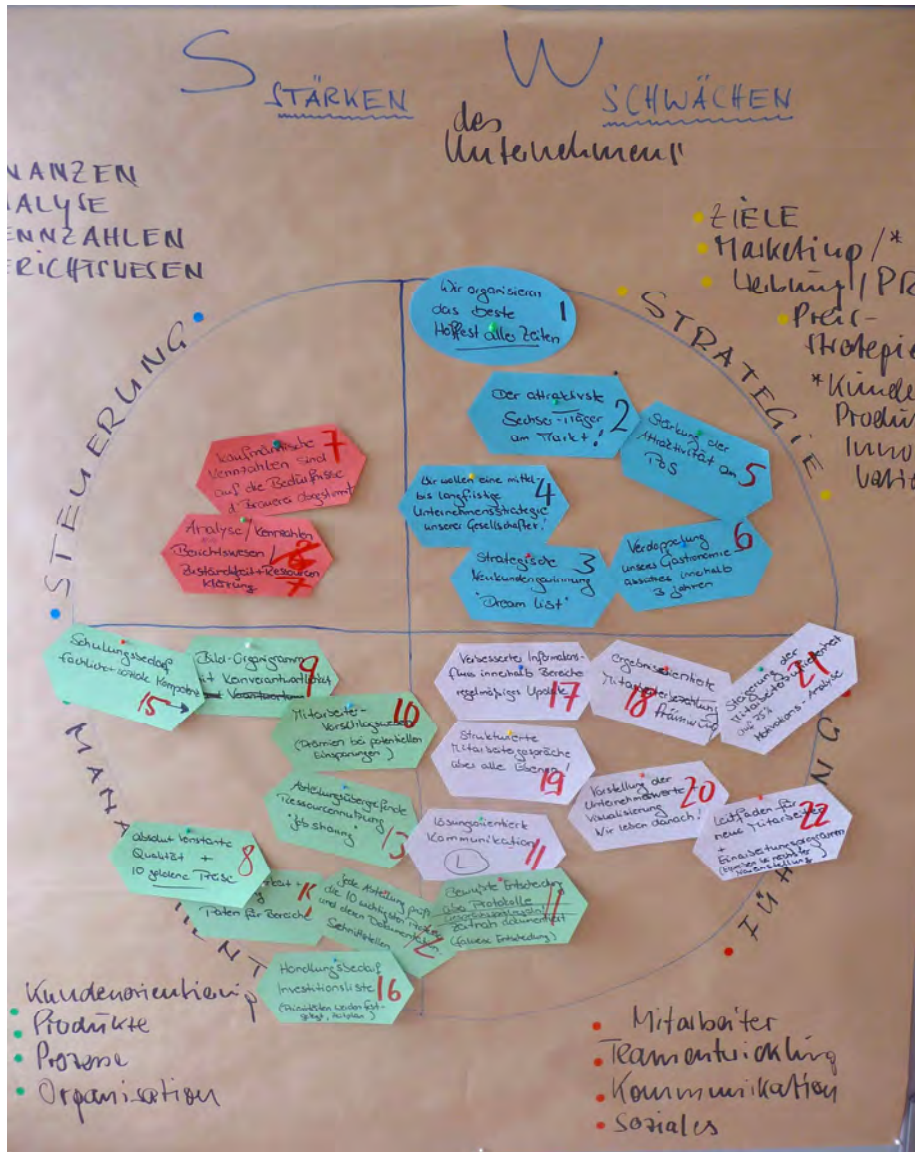 S W
STÄRKEN SCHWÄCHEN
des
Unternehmens
NANZEN
ALYSE
ENNZAHLEN
ERICHTSWESEN
ZIELE
Marketing/*
Werbung/PR
Preis-
strategie
*Kunde
Produ
Inno
vatio
STEUERUNG
STRATEGIE
Wir organisieren
das beste
Hoffest aller Zeiten
1
Der attraktivste
Sechser-Träger
am Markt!
2
Stärkung der
Attraktivität am
PoS
5
Wir wollen eine mittel-
bis langfristige
Unternehmensstrategie
unserer Gesellschafter!
4
Strategische
Neukundengewinnung
"Dream list"
3
Verdoppelung
unseres Gastronomie
absatzes innerhalb
3 Jahren
6
Kaufmännische
Kennzahlen sind
auf die Bedürfnisse
d. Brauerei abgestimmt
7
Analyse/Kennzahlen
Berichtswesen/
Zuständigkeit+Ressourcen
klärung
7
Schulungsbedarf
fachliche + soziale Kompetenz
15
Bild-Organigramm
mit
9
Mitarbeiter-
Vorschlagswesen
(Prämien bei potentiellen
Einsparungen)
10
Abteilungsübergreifende
Ressourcennutzung
"Job sharing"
13
absolut konstante
Qualität +
10 goldene Preise
8
Paten für Bereiche
jede Abteilung prüft
die 10 wichtigsten Prozesse
und deren Dokumentation
Schnittstellen
12
Bewußte Entscheidung
zeitnah dokumentiert
11
Handlungsbedarf
Investitionsliste
16
Verbesserter Informations-
fluss innerhalb Bereiche
regelmäßiges Update
17
ergebnisorientierte
Mitarbeiterbezahlung
18
Strukturierte
Mitarbeitergespräche
über alle Ebenen!
19
Lösungsorientierte
Kommunikation
L
11
Vorstellung der
Unternehmenswerte
Visualisierung
Wir leben danach!
20
Steigerung der
Mitarbeiterzufriedenheit
auf 75%
Motivations-Analyse
21
Leitfaden für
neue Mitarbeiter
+
Einarbeitungsprogramm
22
Kundenorientierung
Produkte
Prozesse
Organisation
Mitarbeiter
Teamentwicklung
Kommunikation
Soziales